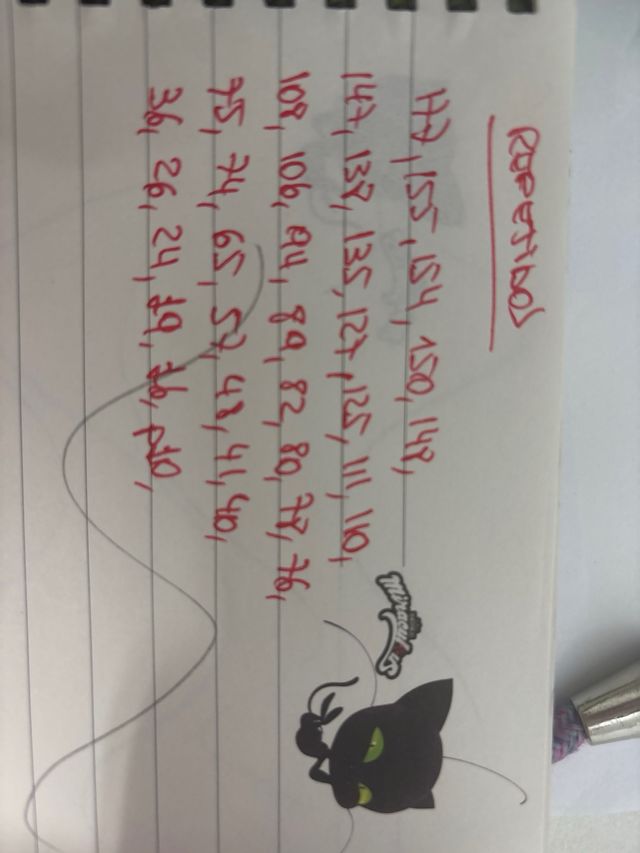 REPETIDOS
177, 155, 154, 150, 148,
147, 138, 135, 127, 125, 111, 110,
108, 106, 94, 89, 82, 80, 78, 76,
75, 74, 65, 57, 48, 41, 40,
36, 26, 24, 19, 16, p10,
MIRACULOUS